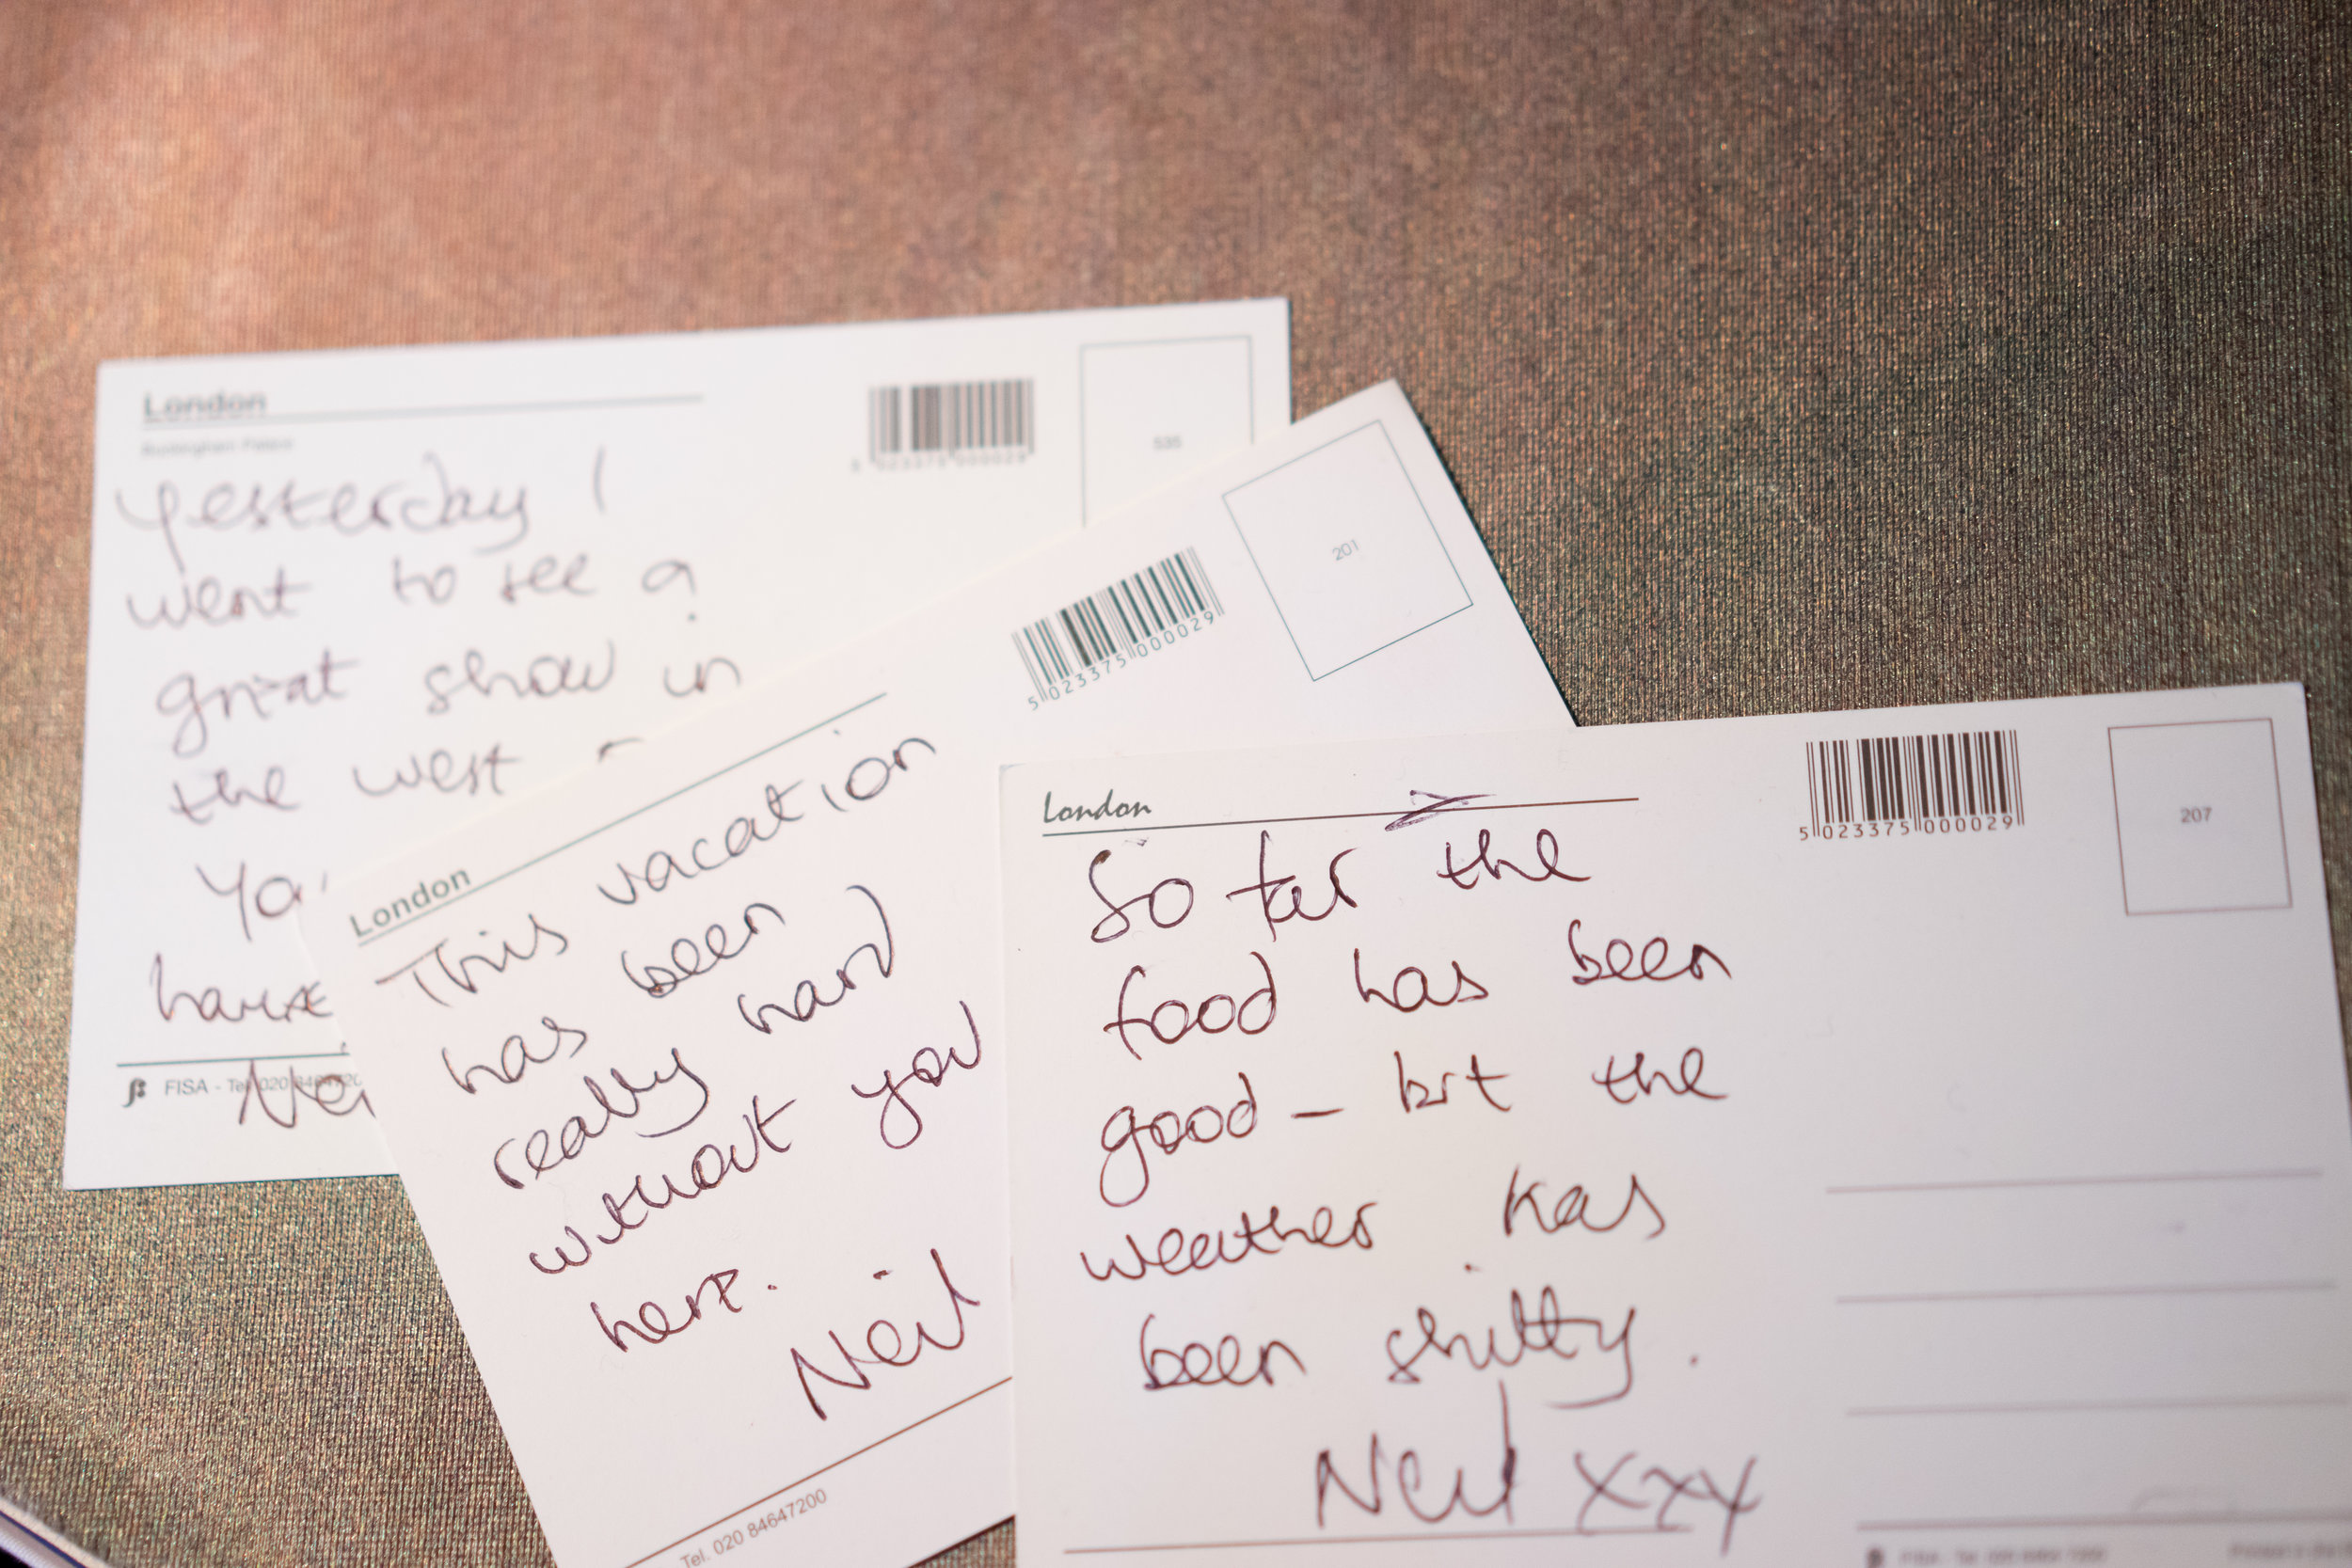 London
Buckingham Palace
5 023375 000029
535
Yesterday I
went to see a
great show in
the west
FISA - Tel. 020 8464720
London
5 023375 000029
201
This vacation
has been
really hard
without you
here.
Neil
Tel. 020 84647200
London
5 023375 000029
207
So far the
food has been
good – but the
weather has
been shitty.
Neil xxx